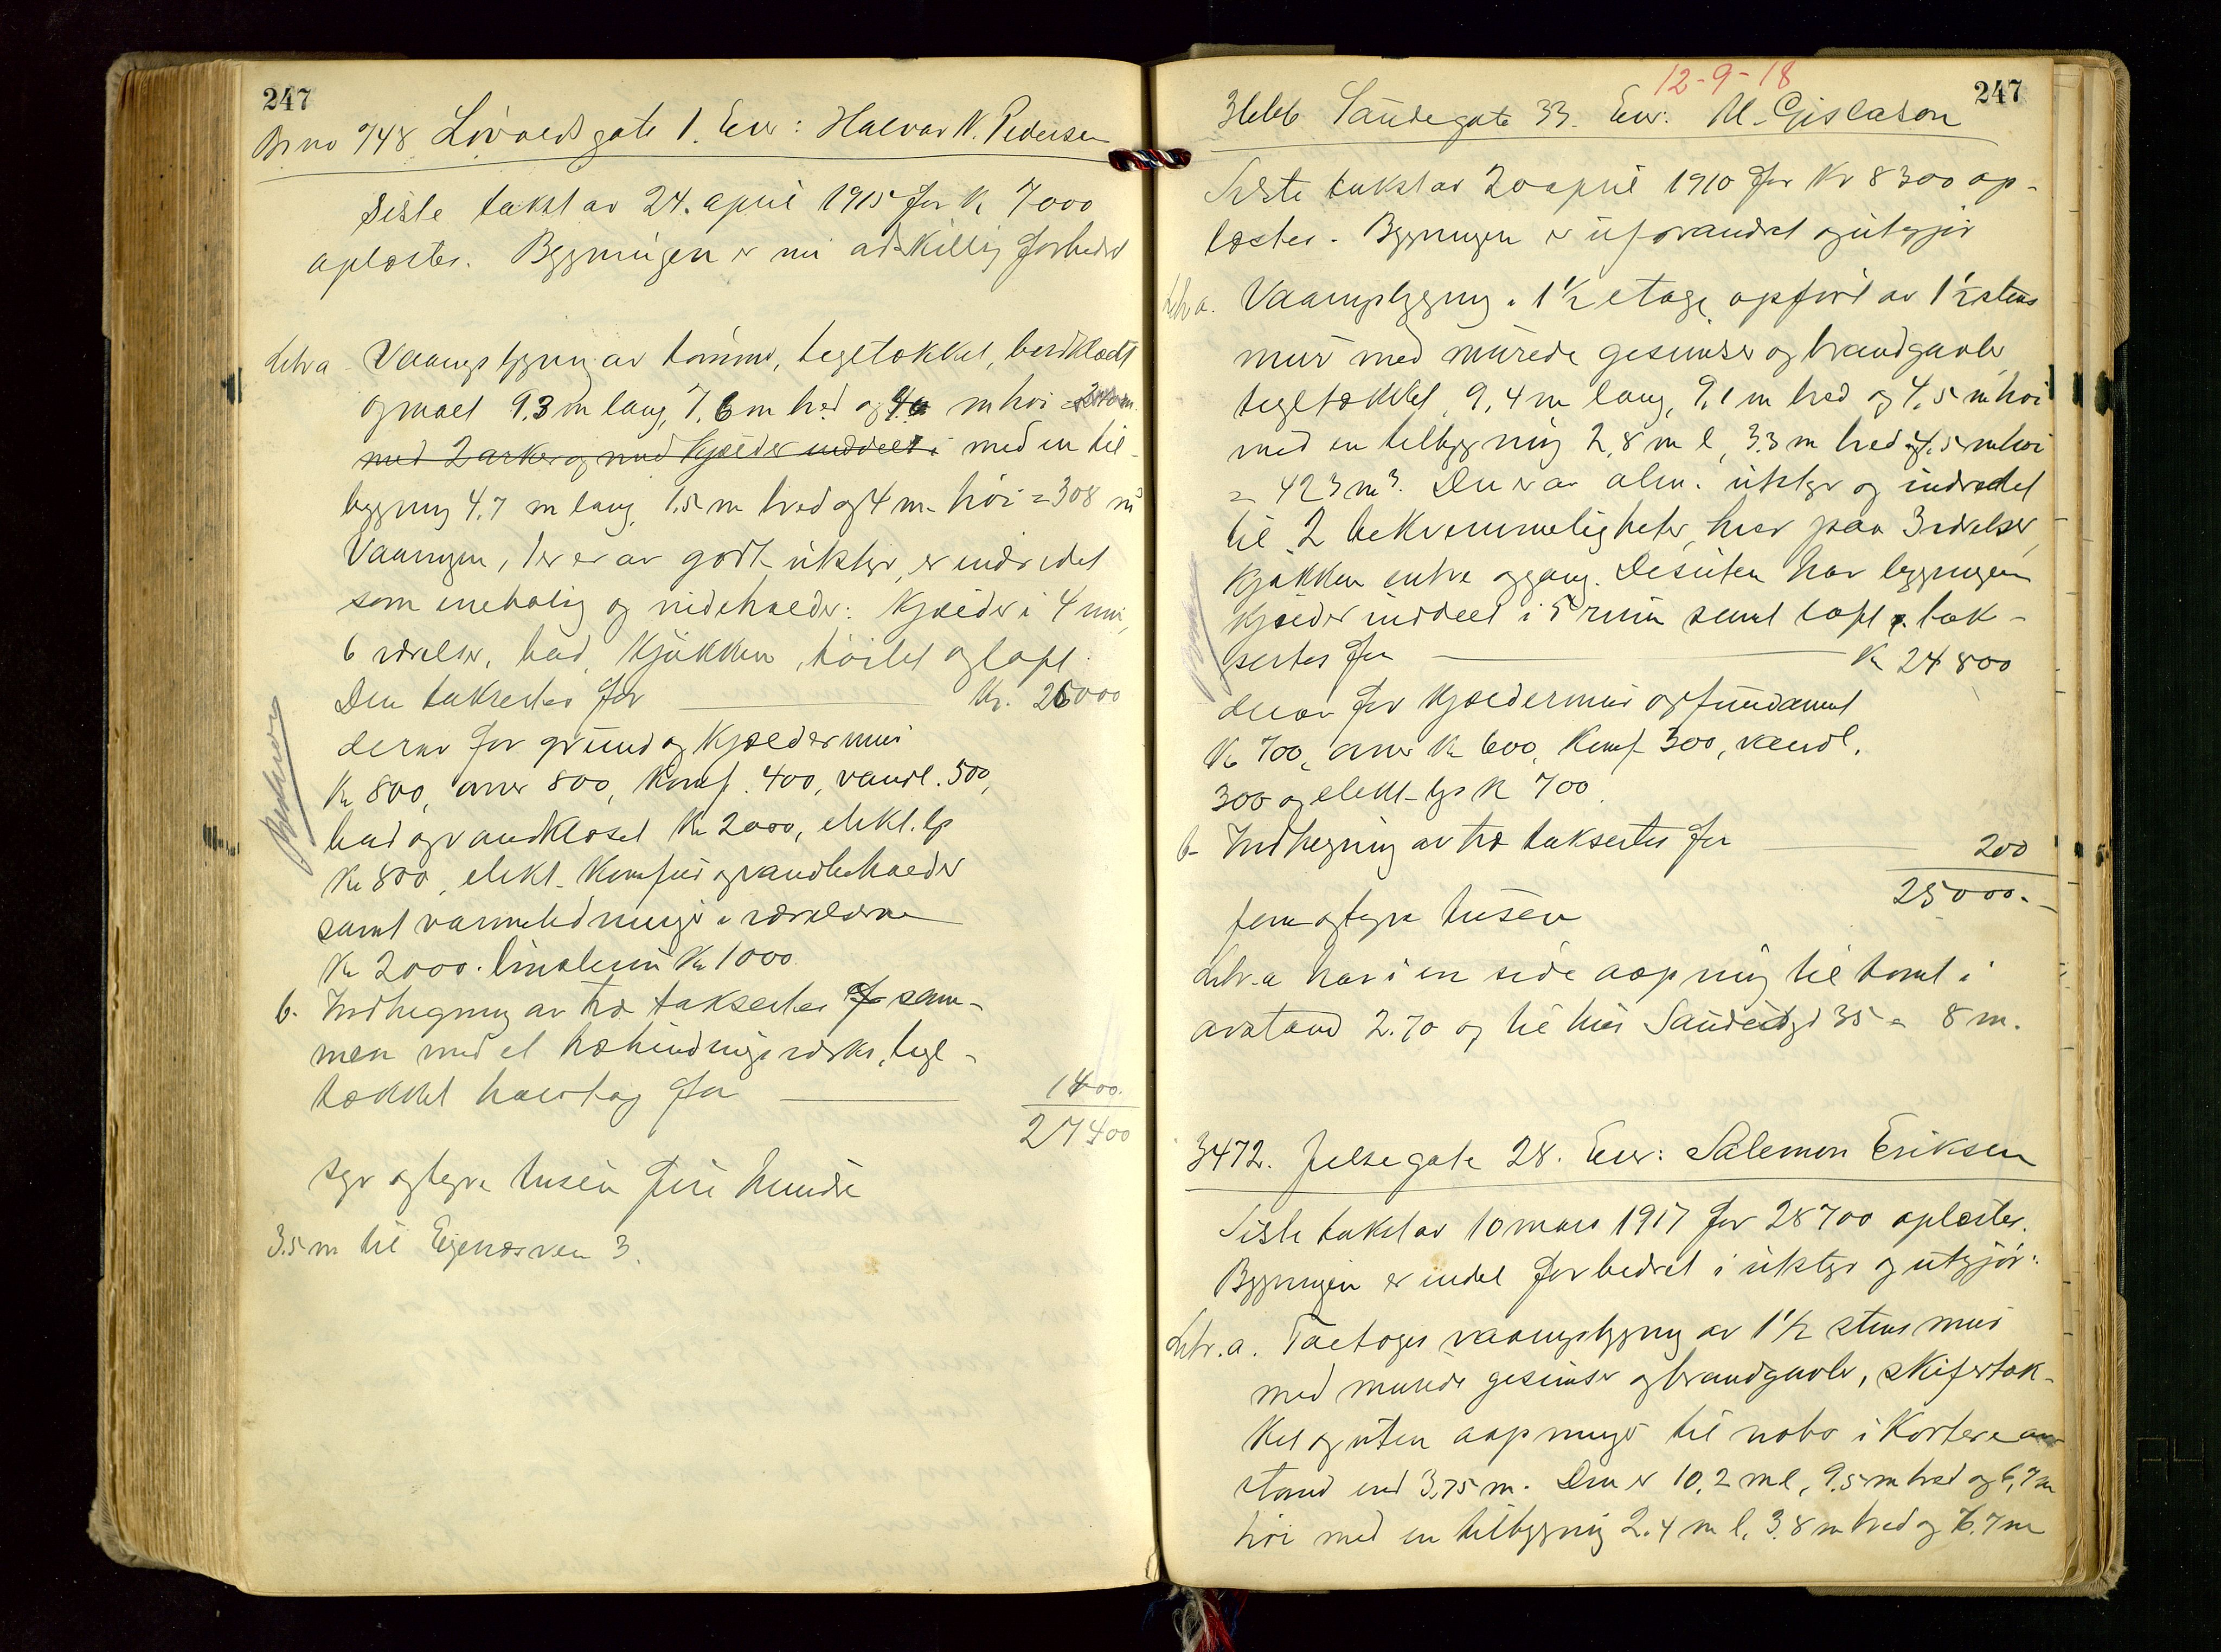 247
Br no 748 Lövoldsgate 1. Eier: Halvar N. Pedersen
Siste takst av 24. april 1915 for K 7000
oplæstes. Bygningen er nu adskillig forbedret
Litr a Vaaningsbygning av tømmer, tegltækket, bordklædt
og malt 9.3 m lang, 7.6 m bred og m høi
med 2 arker og med kjælder inddelt i med en til-
bygning 4.7 m lang, 1.5 m bred og 4 m. høi = 308 m³
Vaaningen, der er av godt utstyr, er indredet
som enebolig og indeholder: Kjælder i 4 rum,
6 værelser, bad, kjøkken, toilet og loft.
Den takseres for Kr. 26000
derav for grund og kjældermur
Kr 800, ovner 800, komf. 400, vandl. 500,
bad og vandkloset Kr 2000, elekt. lys
Kr 800, elekt. komfur og vandbeholder
samt varmeledninger i værelserne
Kr 2000. linoleum Kr 1000
b. Indhegning av træ takseres sam-
men med et træbindingsverks, tegl-
tækket for 1400.
27400
syv og tyve tusen fire hundre
3.5 m til Eiganesveien 3.
12-9-18
247
3466 Saudegate 33. Eier: M. Gislason
Siste takst av 20 april 1910 for Kr 8300 op-
læstes. Bygningen er uforandret og utgjør
Litr a. Vaaningsbygning i 1½ etage, opført av 1½ stens
mur med murede gesimser og brandgavler,
tegltækket, 9,4 m lang, 9,1 m bred og 4,5 m høi
med en tilbygning 2,8 m l, 3.3 m bred og 4.5 m høi
= 423 m³. Den er av alm. utstyr og indredet
til 2 bekvemmeligheter, hver paa 3 værelser,
kjøkken entre og gang. Desuten har bygningen
kjælder inddelt i 5 rum samt loft. tak-
seres for Kr 24800
derav for kjældermur og fundament
Kr 700, ovner Kr 600, komf 300, vandl.
300 og elekt. lys K 700.
b- Indhegning av træ takseres for 200
25000.-
fem og tyve tusen
Litr. a har i en side aapning til tomt i
avstand 2.70 og til hus Saudegt 35 = 8 m.
3472. Jelsegate 28. Eier: Salemon Eriksen
Siste takst av 10 mars 1917 for 28700 oplæstes.
Bygningen er endel forbedret i utstyr og utgjør:
Litr. a. Toetages vaaningsbygning av 1½ stens mur
med murede gesimser og brandgavler, skifertæk-
ket og uten aapninger til nabo i kortere av-
stand end 3.75 m. Den er 10,2 m l, 9.5 m bred og 6,7 m
høi med en tilbygning 2.4 m l, 3.8 m bred og 6.7 m